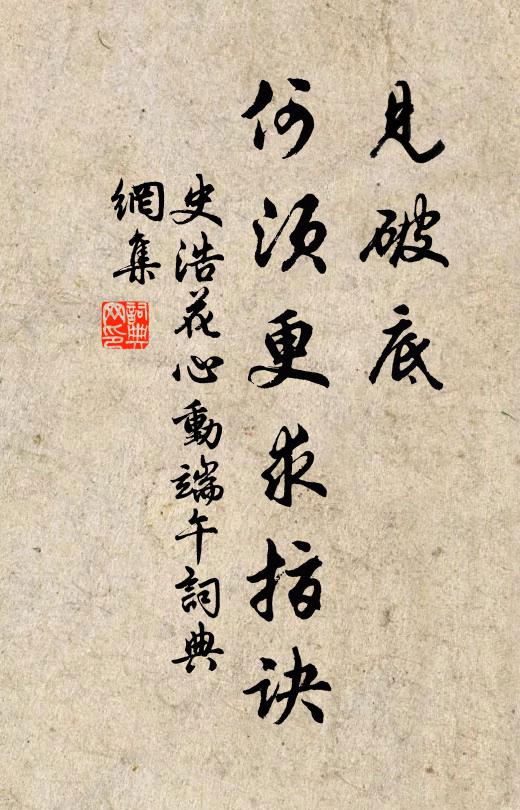 見破底
何須更求指訣
史浩花心動端午詞典
網集
詞典
网印